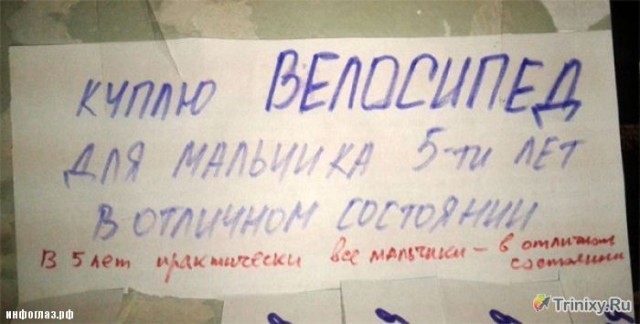 КУПЛЮ ВЕЛОСИПЕД
ДЛЯ МАЛЬЧИКА 5-ти ЛЕТ
В ОТЛИЧНОМ СОСТОЯНИИ
В 5 лет практически все мальчики – в отличном
состоянии
инфоглаз.рф
Trinixy.Ru